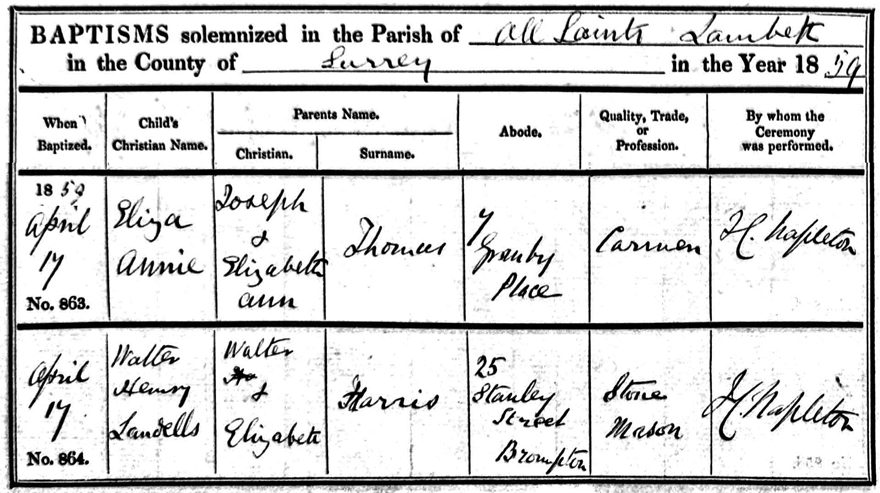 BAPTISMS solemnized in the Parish of All Saints Lambeth
in the County of Surrey in the Year 1859
When Baptized. Child's Christian Name. Parents Name. Christian. Surname. Abode. Quality, Trade, or Profession. By whom the Ceremony was performed.
1859
April
17
No. 863.
Eliza
Annie
Joseph
&
Elizabeth
Ann
Thomas
7
Granby
Place
Carmen
H. C. Napleton
April
17
No. 864.
Walter
Henry
Landells
Walter
&
Elizabeth
Harris
25
Stanley
Street
Brompton
Stone
Mason
H C Napleton